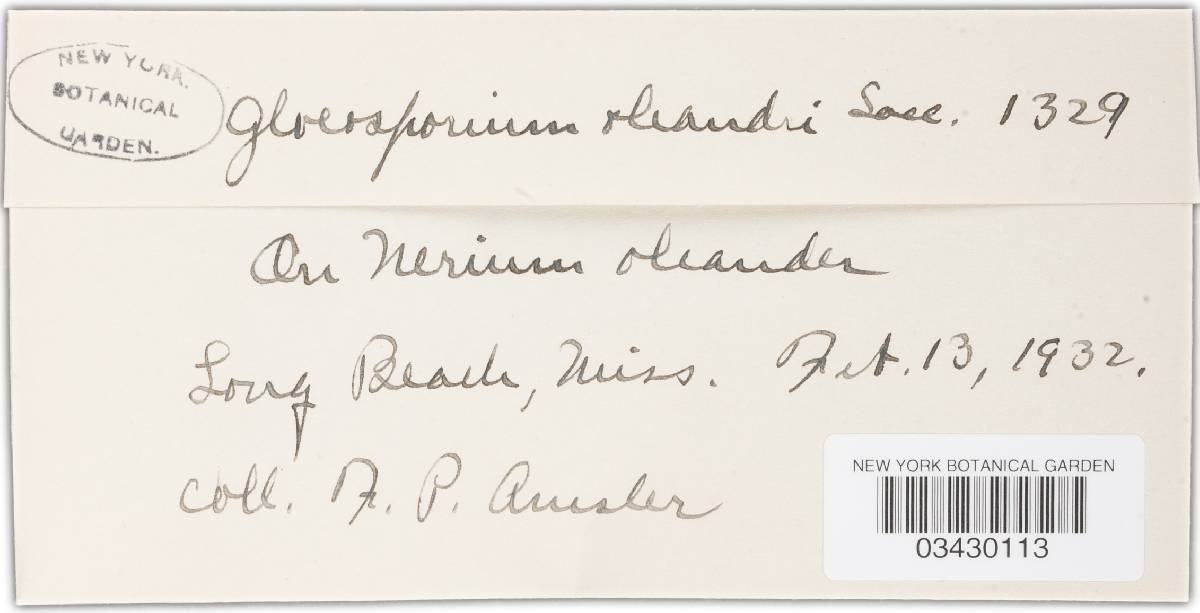 NEW YORK
BOTANICAL
GARDEN.
Gloeosporium oleandri Sacc. 1329
On Nerium oleander
Long Beach, Miss. Feb. 13, 1932.
coll. F. P. Amsler
NEW YORK BOTANICAL GARDEN
03430113